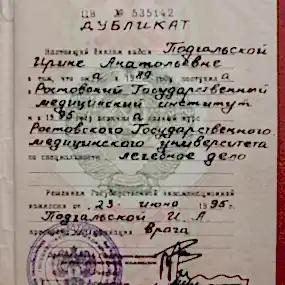 ЦВ № 535142
ДУБЛИКАТ
Настоящий диплом выдан Подгальской
Ирине Анатольевне
в том, что он а в 1989 году поступил а
в Ростовский Государственный
медицинский институт
и в 1995 году окончил а полный курс
Ростовского Государственного
медицинского университета
по специальности лечебное дело
Решением Государственной экзаменационной
комиссии от 23 июня 1995 г.
Подгальской И. А
присвоена квалификация врача